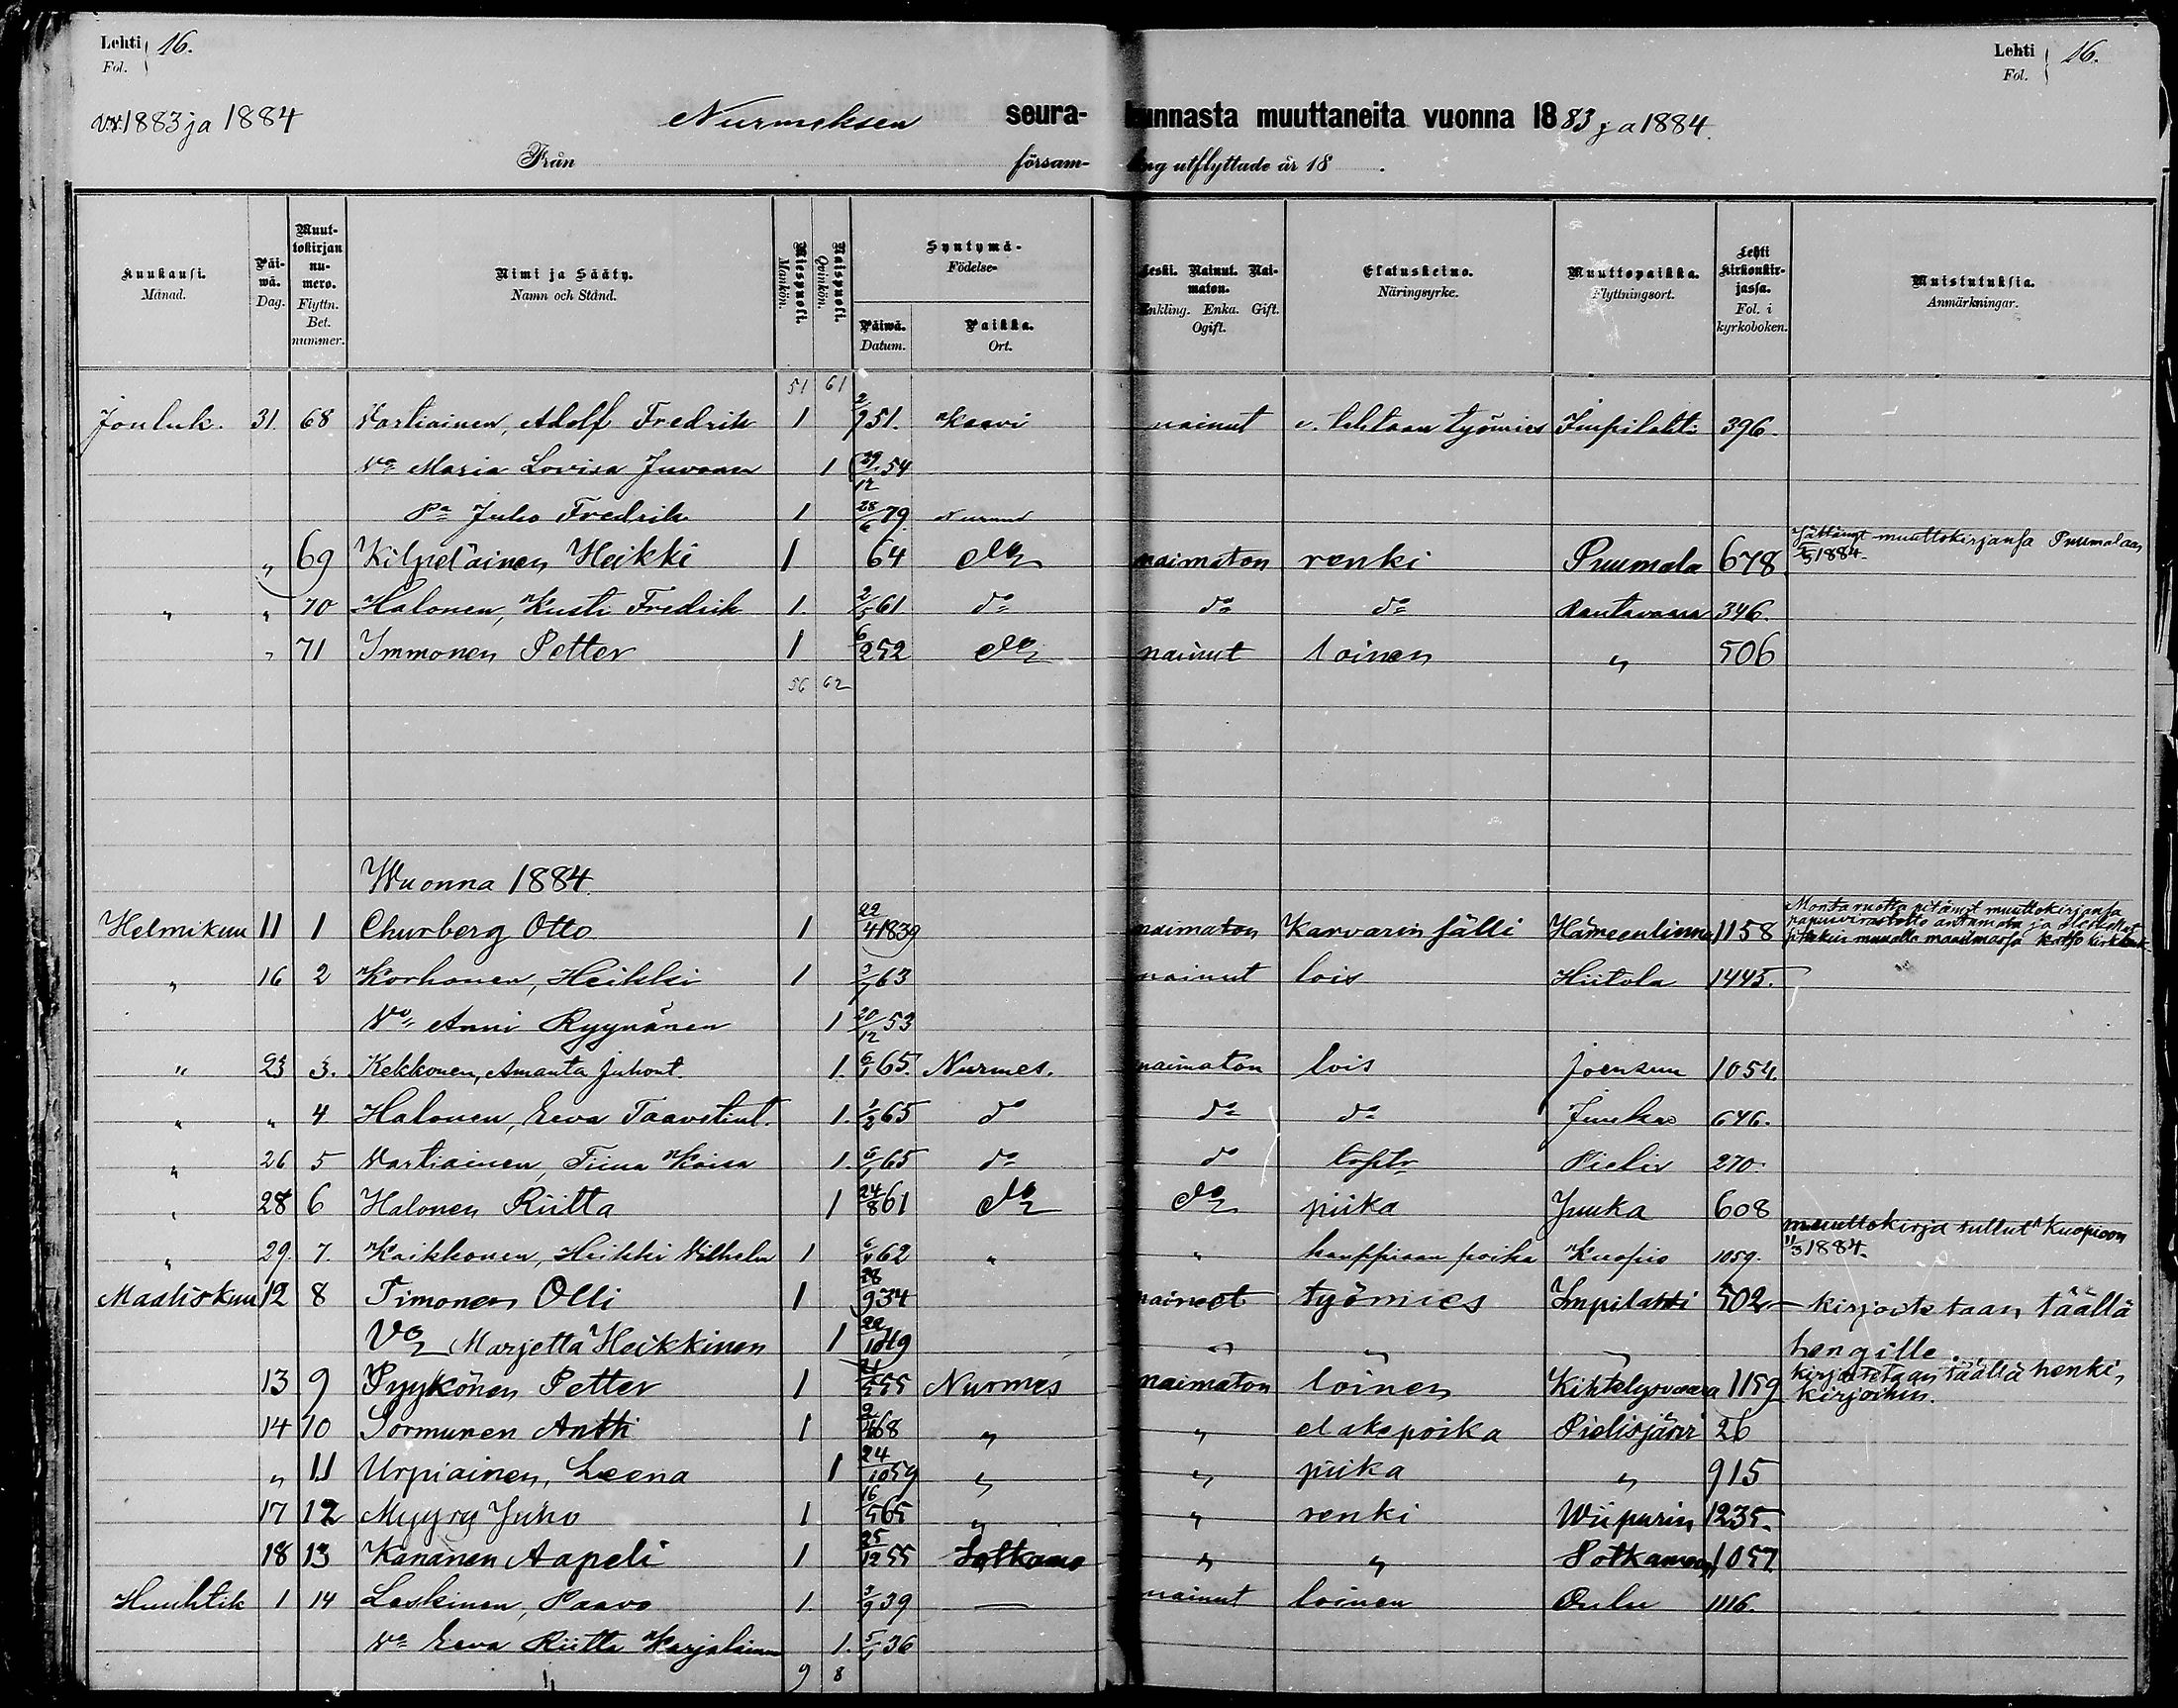 Lehti 16. Lehti 16.
Fol. Fol.
v.v. 1883 ja 1884 Nurmeksen seura- kunnasta muuttaneita vuonna 1883 ja 1884.
Från försam- ling utflyttade år 18 .
Kuukausi. Månad. Päi-wä. Dag. Muut-tokirjan nu-mero. Flyttn. Bet. nummer. Nimi ja Sääty. Namn och Stånd. Miespuoli. Mankön. Naispuoli. Qvinkön. Syntymä- Födelse- Päiwä. Datum. Paikka. Ort. Leski. Nainut. Nai-maton. Enkling. Enka. Gift. Ogift. Elatuskeino. Näringsyrke. Muuttopaikka. Flyttningsort. Lehti kirkonkir-jassa. Fol. i kyrkoboken. Muistutuksia. Anmärkningar.
51 61
Jouluk. 31 68 Vartiainen, Adolf Fredrik 1 2/9 51. Kaavi nainut e. tehtaan työmies Impilahti 396.
Vo Maria Lovisa Juvonen 1 29/12 54
Pa Juho Fredrik 1 28/6 79. Nurmes
„ 69 Kilpeläinen Heikki 1 64 do naimaton renki Puumala 678 Jättänyt muuttokirjansa Puumalaan 1884.
„ „ 70 Halonen, Kusti Fredrik 1. 2/5 61 do do do Rautavaara 346.
„ 71 Immonen Petter 1 6/2 52 do nainut loinen „ 506
56 62
Wuonna 1884.
Helmikuu 11 1 Churberg Otto 1 22/4 1839 naimaton Karvarin sälli Hämeenlinna 1158 Monta vuotta pitänyt muuttokirjansa
„ 16 2 Korhonen, Heikki 1 63 nainut lois Hiitola 1445.
Vo Anni Ryynänen 1 20/12 53
„ 23 3. Kekkonen, Amanta Juhont. 1. 6/1 65. Nurmes. naimaton lois Joensuu 1054.
„ „ 4 Halonen, Eeva Taavetint. 1. 1/3 65 do do do Juuka 646.
„ 26 5 Vartiainen, Tiina Kaisa 1. 6/1 65 do do Pielis 270.
„ 28 6 Halonen Riitta 1 24/8 61 do do piika Juuka 608
„ 29. 7. Kaikkonen, Heikki Vilhelm 1 62 „ „ kauppiaan poika Kuopio 1059. muuttokirja tullut Kuopioon 11/3 1884.
Maaliskuu 12 8 Timonen Olli 1 28/9 34 nainut työmies Impilahti 502 – kirjoitetaan täällä
Vo Marjetta Heikkinen 1 22/10 49 „ „ „ hengille
13 9 Pyykönen Petter 1 55 Nurmes naimaton loinen Kihtelysvaara 1159 kirjoitetaan täällä henki-kirjoihin.
14 10 Sormunen Antti 1 68 „ „ elakepoika Pielisjärvi 26
„ 11 Urpiainen, Leena 1 24/10 59 „ „ piika „ 915
17 12 Myyry Juho 1 16/5 65 „ „ renki Wiipurin 1235.
18 13 Kananen Aapeli 1 25/12 55 Sotkamo „ „ Sotkamoon 1057
Huuhtik 1 14 Leskinen, Paavo 1. 3/9 39 — nainut loinen Oulu 1116.
Vo Eeva Riitta Karjalainen 1. 5/1 36
9 8